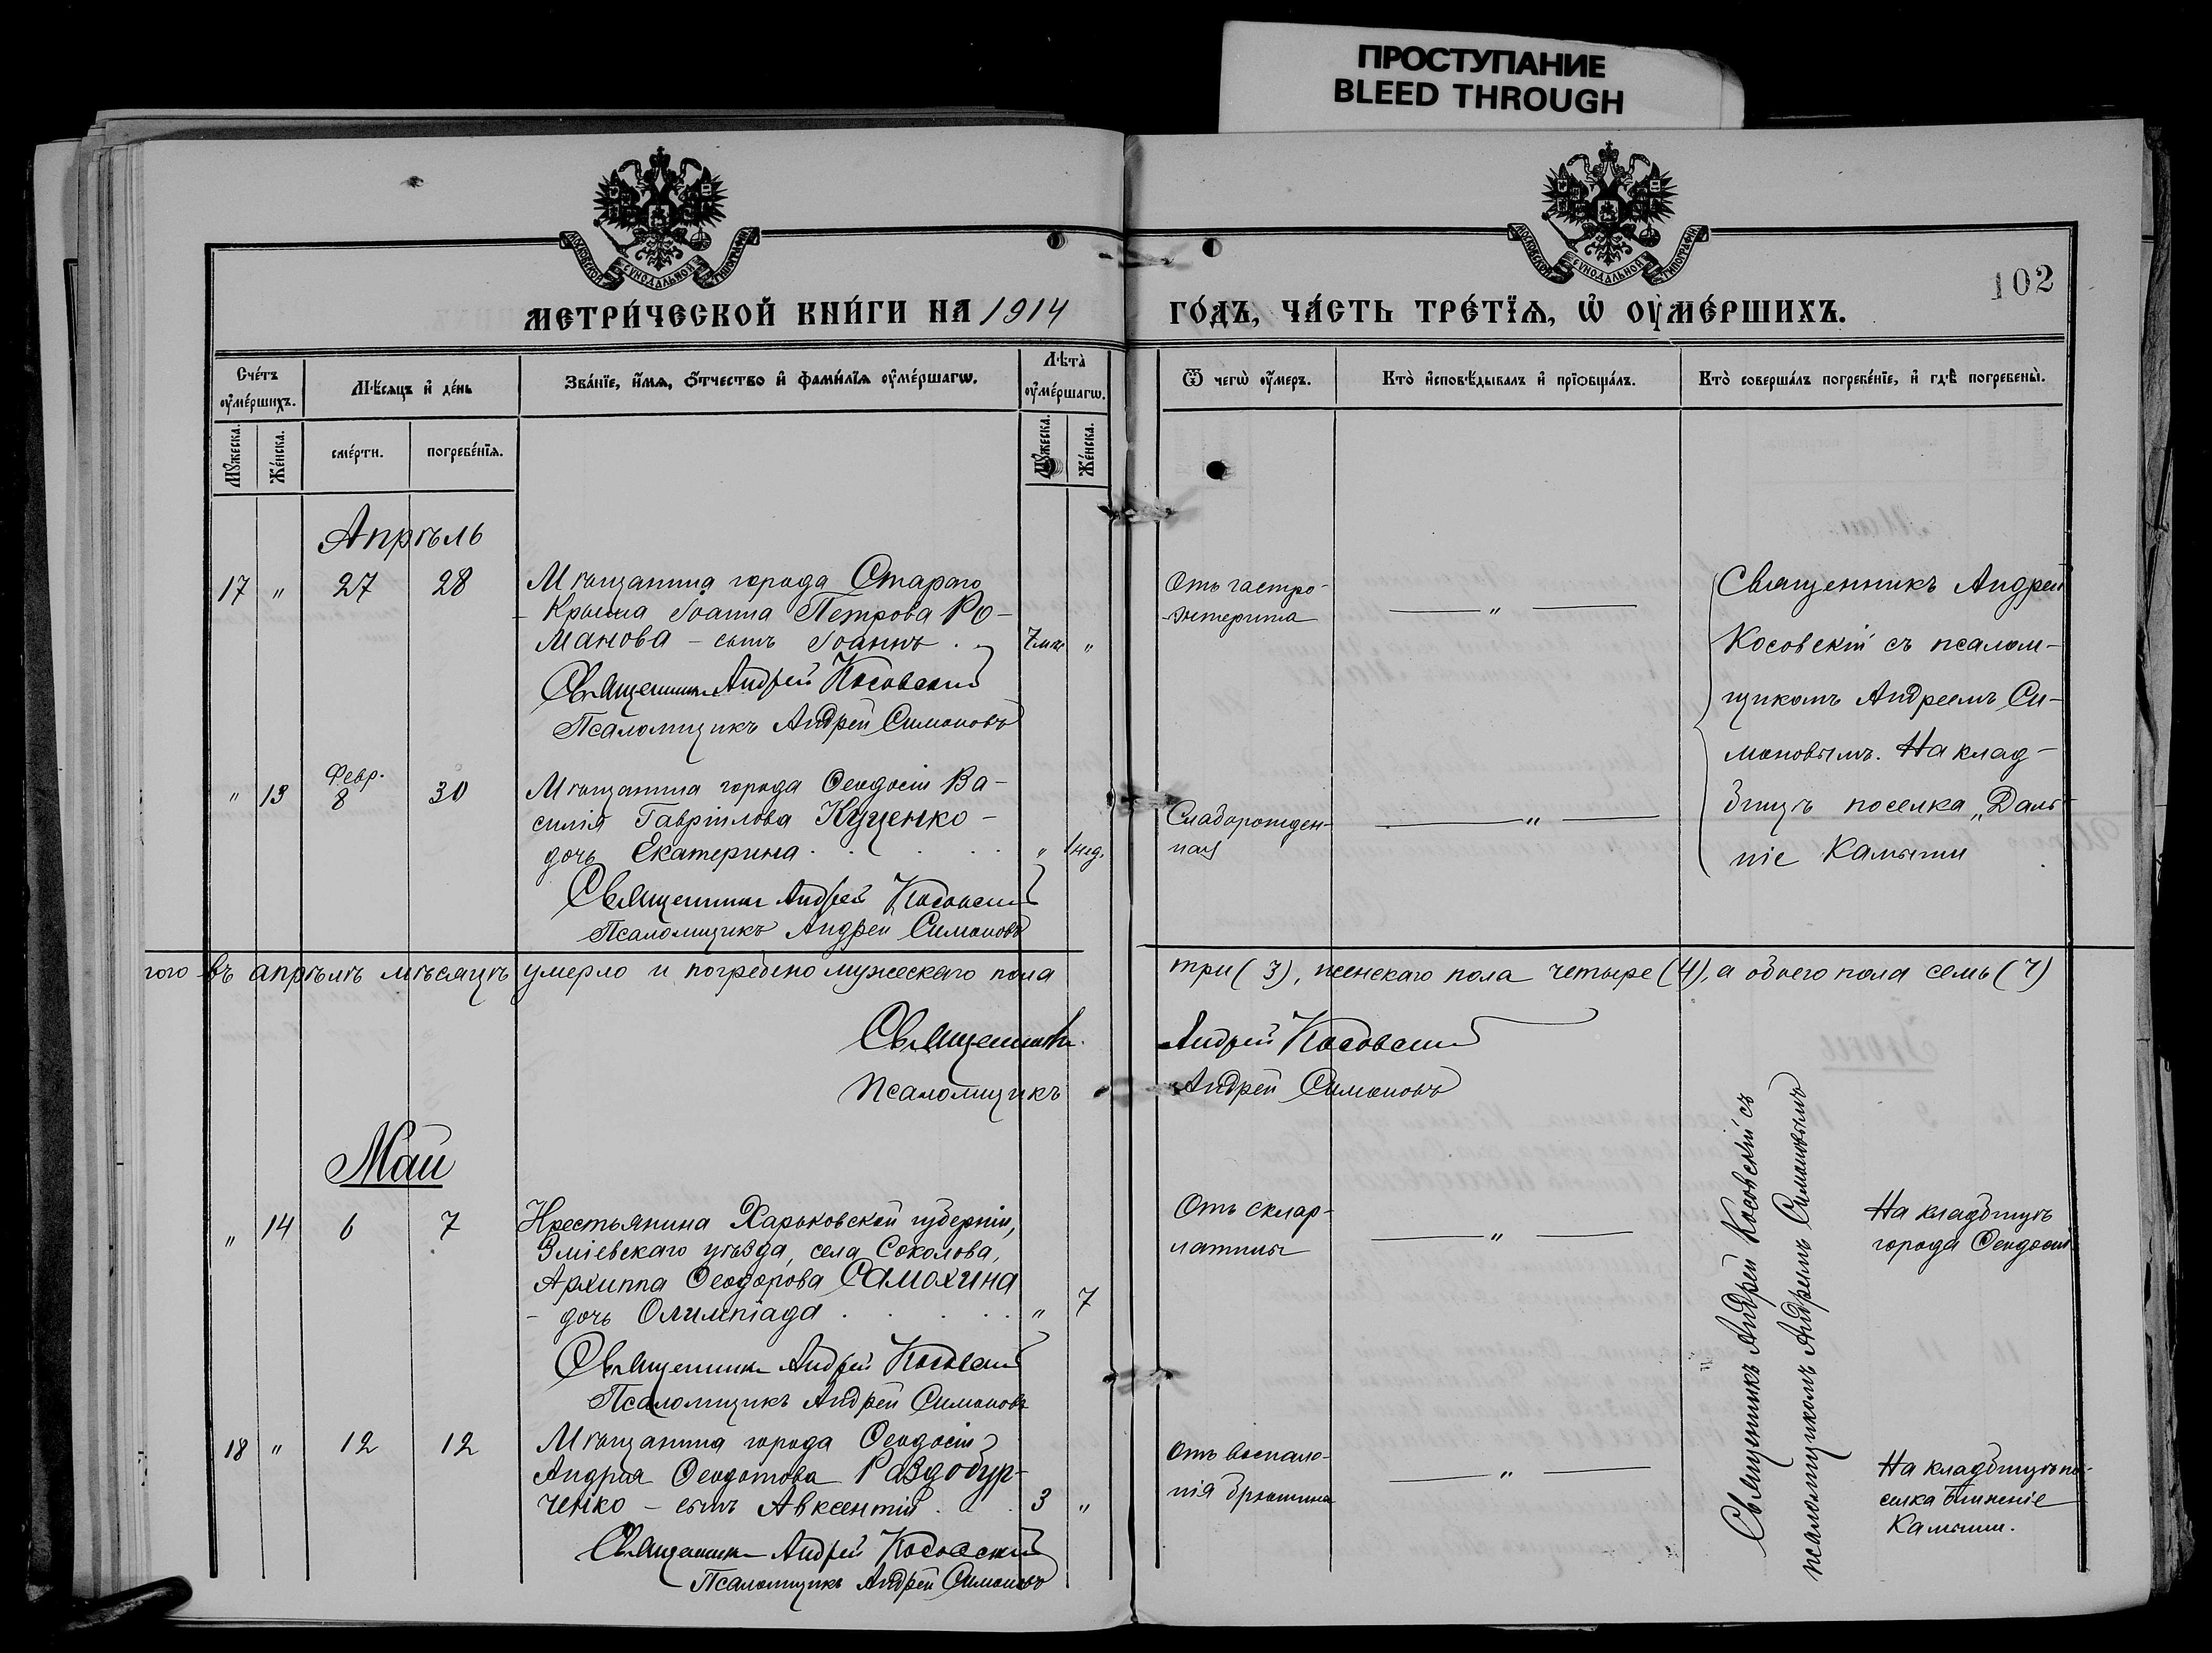 ПРОСТУПАНИЕ
BLEED THROUGH
МОСКОВСКОЙ СѴНОДАЛЬНОЙ ТИПОГРАФІИ
МОСКОВСКОЙ СѴНОДАЛЬНОЙ ТИПОГРАФІИ
102
МЕТРИ́ЧЕСКОЙ КНИ́ГИ НА 1914 ГО́ДЪ, ЧА́СТЬ ТРЕ́ТЇѦ, Ѡ҆ ОУ҆МЕ́РШИХЪ.
Сче́тъ оу҆ме́ршихъ.
Мꙋ́жеска.
Же́нска.
Мѣ́сѧцъ и҆ де́нь
сме́рти.
погребе́нїѧ.
Зва́нїе, и҆́мѧ, ѻ҆́тчество и҆ фами́лїѧ оу҆ме́ршагѡ.
Лѣ́та оу҆ме́ршагѡ.
Мꙋ́жеска.
Же́нска.
Ѿ чегѡ̀ оу҆́меръ.
Кто̀ и҆сповѣ́дывалъ и҆ прїѻбща́лъ.
Кто̀ соверша́лъ погребе́нїе, и҆ гдѣ̀ погребены̀.
Апрѣль
17 " 27 28
Мѣщанина города Стараго
Крыма Іоанна Петрова Ро-
манова - сынъ Іоаннъ . 7 мѣс "
Священникъ Андрей Косовский
Псаломщикъ Андрей Симоновъ
Отъ гастро-
энтерита
— " —
Священникъ Андрей
Косовскій съ псалом-
щикомъ Андреемъ Си-
моновымъ. На клад-
бищѣ поселка „Даль-
ніе Камыши
" 13 Февр. 8 30
Мѣщанина города Ѳеодосіи Ва-
силія Гавріилова Куценко -
дочь Екатерина . . . . . " 1 нед.
Священникъ Андрей Косовский
Псаломщикъ Андрей Симоновъ
Слаборожден-
ная
— " —
того въ апрѣлѣ мѣсяцѣ умерло и погребено мужескаго пола три (3), женскаго пола четыре (4), а обоего пола семь (7)
Священникъ Андрей Косовский
Псаломщикъ Андрей Симоновъ
Май
" 14 6 7
Крестьянина Харьковской губерніи,
Зміевскаго уѣзда, села Соколова,
Архиппа Ѳеодорова Самохина
- дочь Олимпіада . . . . . " 7
Священникъ Андрей Косовский
Псаломщикъ Андрей Симоновъ
Отъ склар-
латины
— " —
Священникъ Андрей Косовскій съ
псаломщикомъ Андреемъ Симоновымъ
На кладбищѣ
города Ѳеодосіи
18 " 12 12
Мѣщанина города Ѳеодосіи
Андрея Ѳеодотова Раздобур-
ченко - сынъ Авксентій . . . 3 "
Священникъ Андрей Косовский
Псаломщикъ Андрей Симоновъ
Отъ воспале-
нія брюшины
— " —
На кладбищѣ по-
селка Ближніе
Камыши.